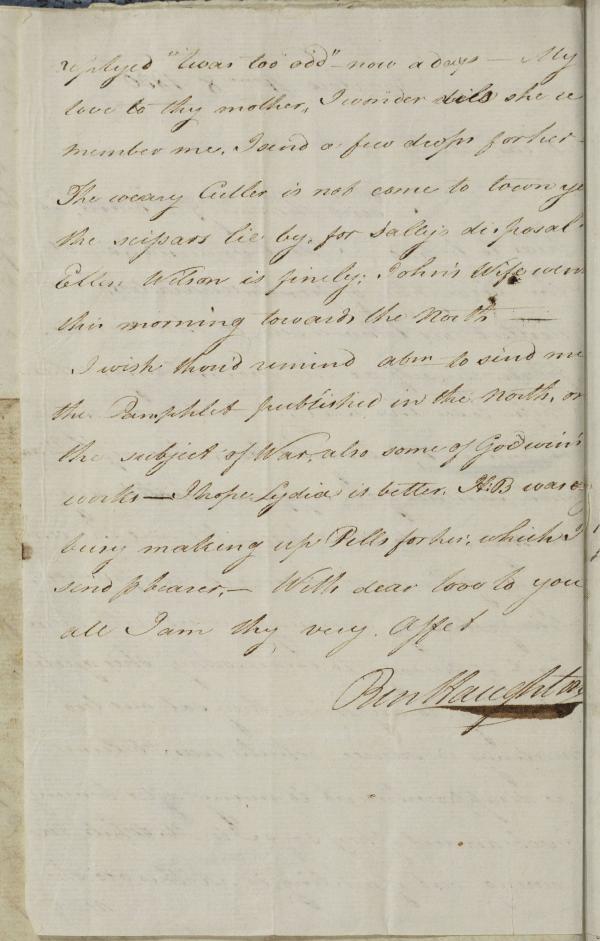 replyed "twas too odd" now a days — My
love to thy mother, I wonder does she re
member me, I send a few drops for her —
The weary Cutler is not come to town ye
the scissars lie by, for Sally's disposal.
Ellen Wilson is finely; John's Wife wen
this morning towards the North —
I wish thou'd remind abm to send me
the Pamphlet published in the North, on
the subject of War, also some of Godwin's
works — I hope Lydia is better. H:B was
busy making up Pills for her, which I
send p bearer, — With dear love to you
all I am thy very Affet
Ben Haughton